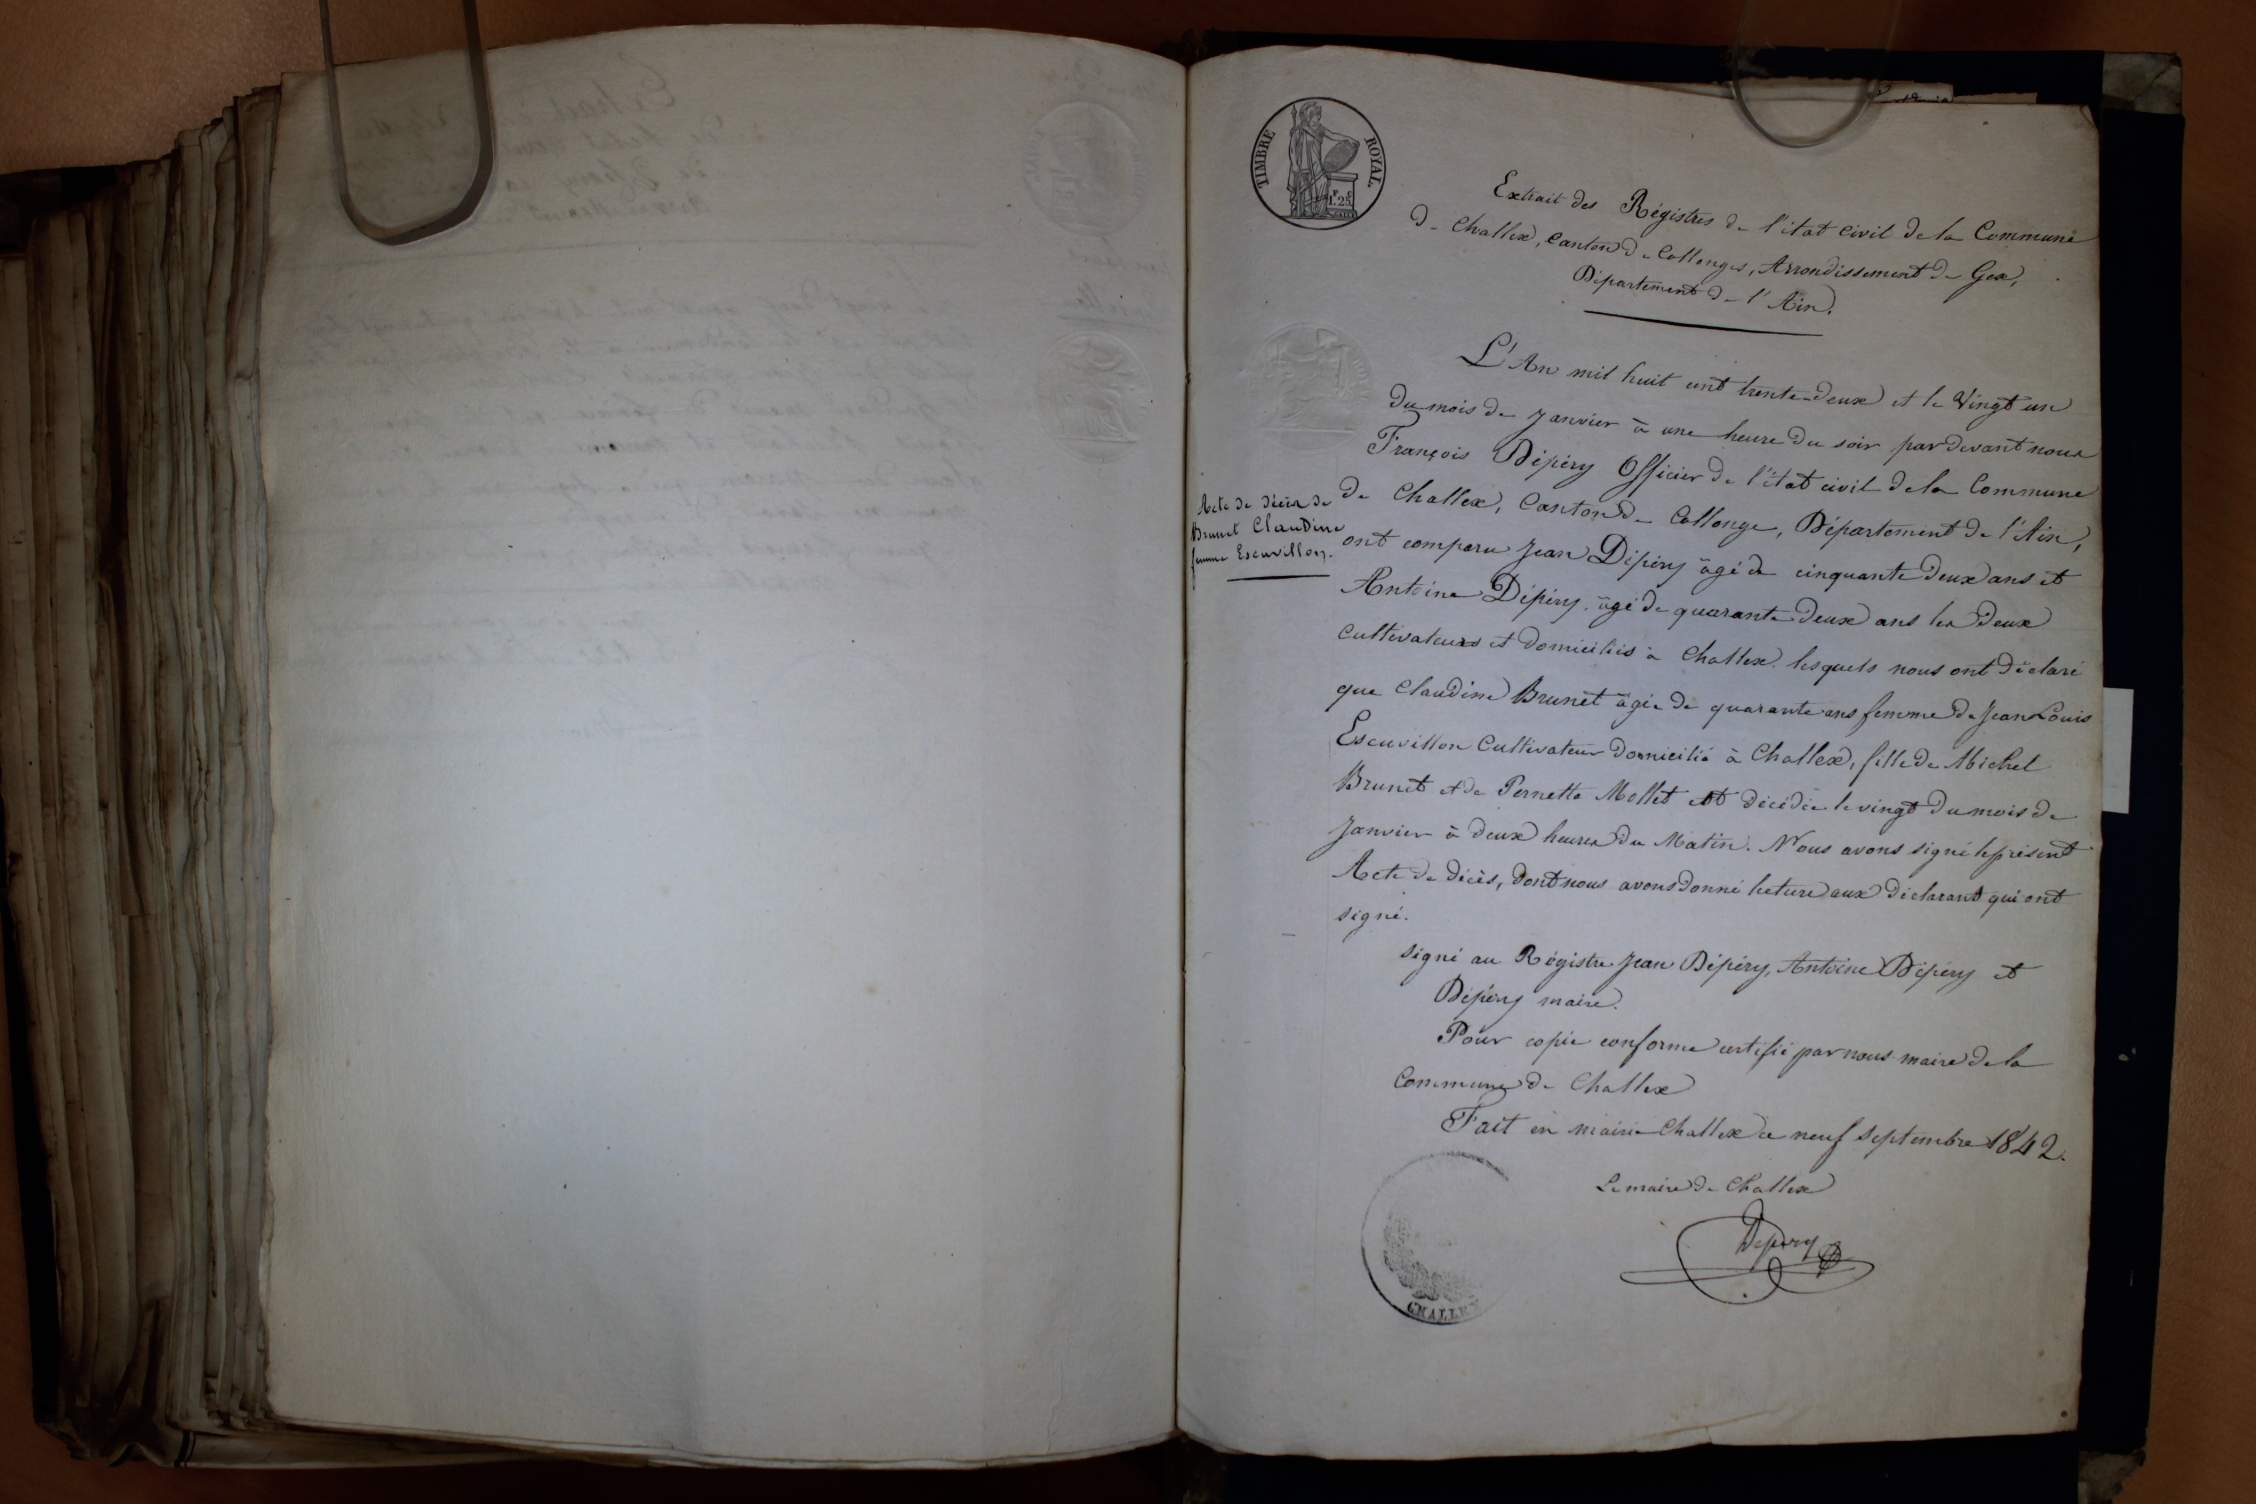 TIMBRE ROYAL.
F. C.
1.25
Extrait des Régistres de l'état civil de la Commune
de Challex, canton de Collonges, Arrondissement de Gex,
Département de l'Ain.
L'An mil huit cent trente-deux et le Vingt un
du mois de Janvier à une heure du soir pardevant nous
François Dépéry Officier de l'état civil de la Commune
de Challex, Canton de Collonge, Département de l'Ain,
Acte de décès de
Brunet Claudine
femme Escuvillon.
ont comparu Jean Dépéry âgé de cinquante deux ans et
Antoine Dépéry, âgé de quarante deux ans les deux
cultivateurs et domiciliés à Challex. lesquels nous ont déclaré
que Claudine Brunet âgée de quarante ans femme de Jean Louis
Escuvillon Cultivateur domicilié à Challex, fille de Michel
Brunet et de Pernette Mollet est décédée le vingt du mois de
Janvier à deux heures du Matin. Nous avons signé le présent
Acte de décès, dont nous avons donné lecture aux déclarant qui ont
signé.
signé au Régistre Jean Dépéry, Antoine Dépéry et
Dépéry maire.
Pour copie conforme certifié par nous maire de la
Commune de Challex
Fait en mairie Challex ce neuf septembre 1842.
Le maire de Challex
Depery
CHALLEX